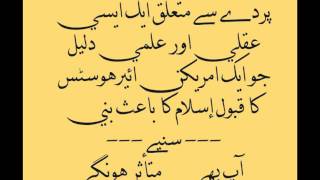 پردے سے متعلق ایک ایسي
عقلي اور علمي دلیل
جو ایک امریکن ائیرهوسٹس
کا قبول إسلام کا باعث بني
--- سنیے ---
آپ بھي متأثر هونگے